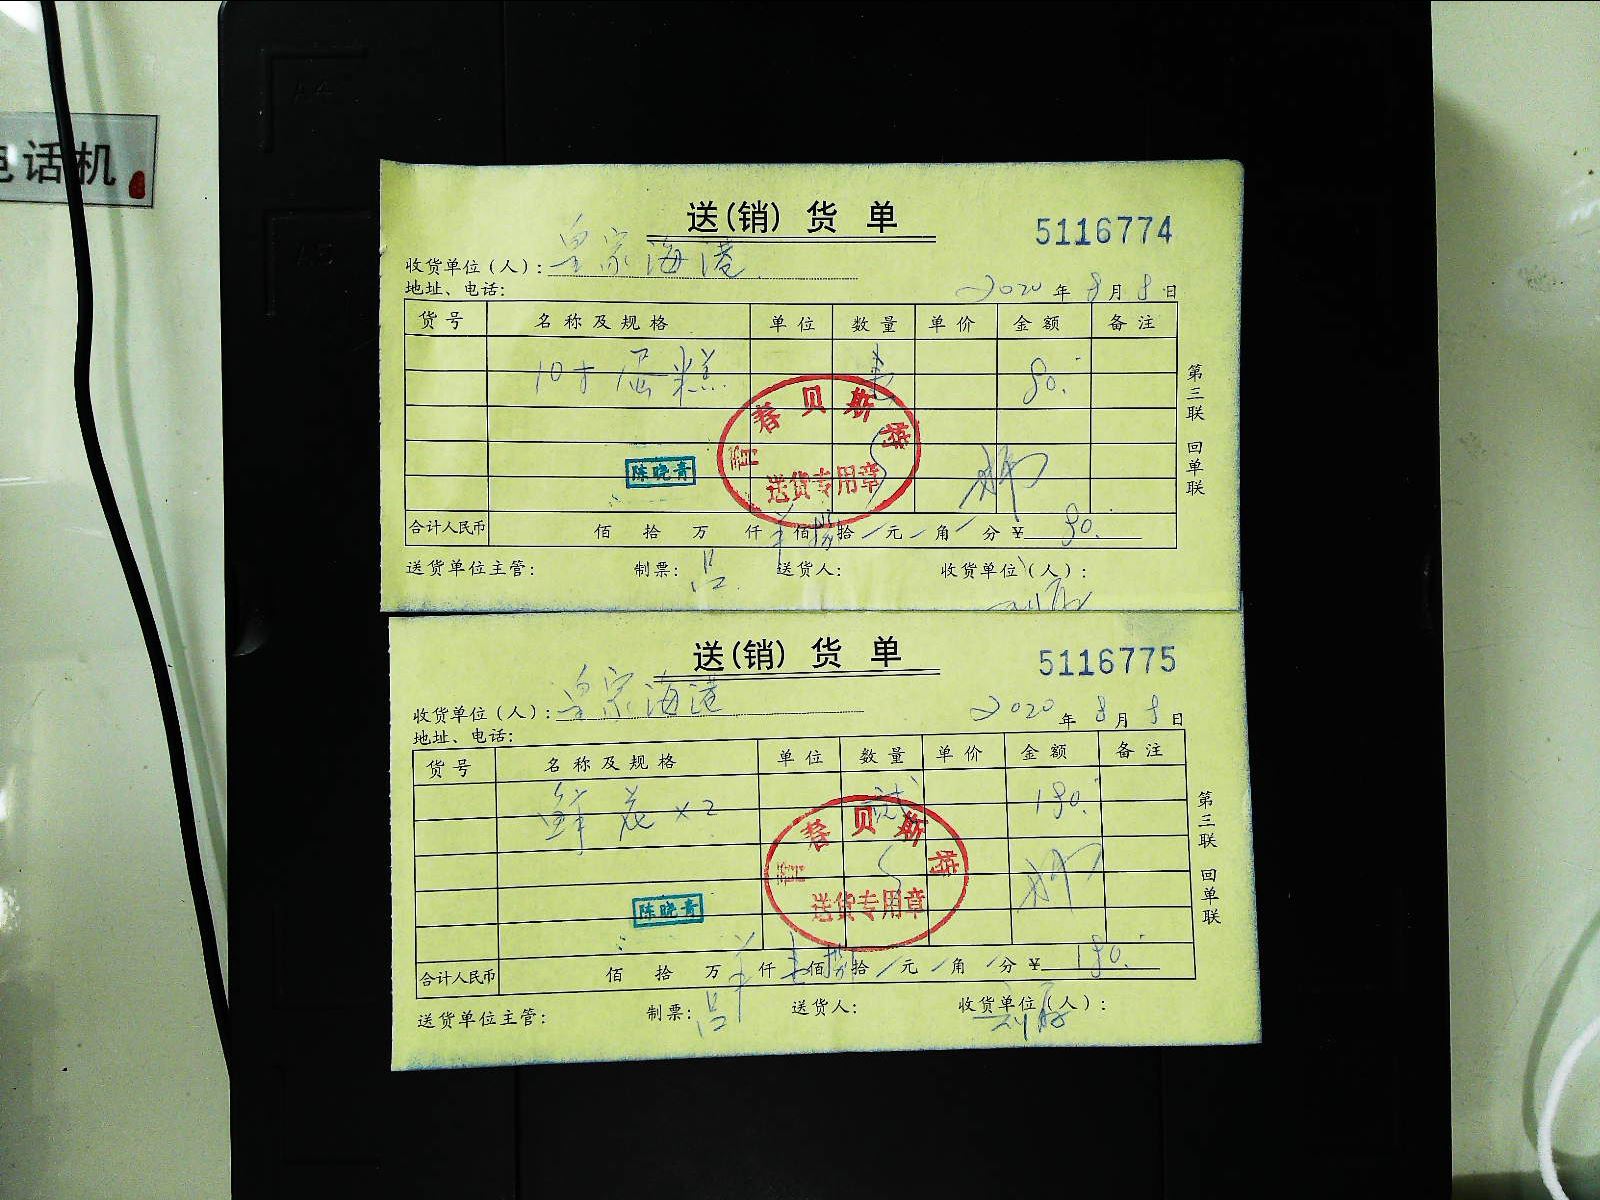 电话机
送(销) 货 单
5116774
收货单位(人): 皇家海港
地址、电话:
2020年 8月 8日
货号 名称及规格 单位 数量 单价 金额 备注
10寸蛋糕 80.
青春贝斯特
送货专用章
陈晓青
合计人民币 佰 拾 万 仟 佰 拾 元 角 分 ¥ 80.
送货单位主管: 制票: 吕 送货人: 收货单位(人):
第三联 回单联
送(销) 货 单
5116775
收货单位(人): 皇家海港
地址、电话:
2020年 8月 8日
货号 名称及规格 单位 数量 单价 金额 备注
鲜花×2 贰 180.
青春贝斯特
送货专用章
陈晓青
合计人民币 佰 拾 万 仟 壹佰 捌拾 元 角 分 ¥ 180.
送货单位主管: 制票: 吕 送货人: 收货单位(人):
第三联 回单联